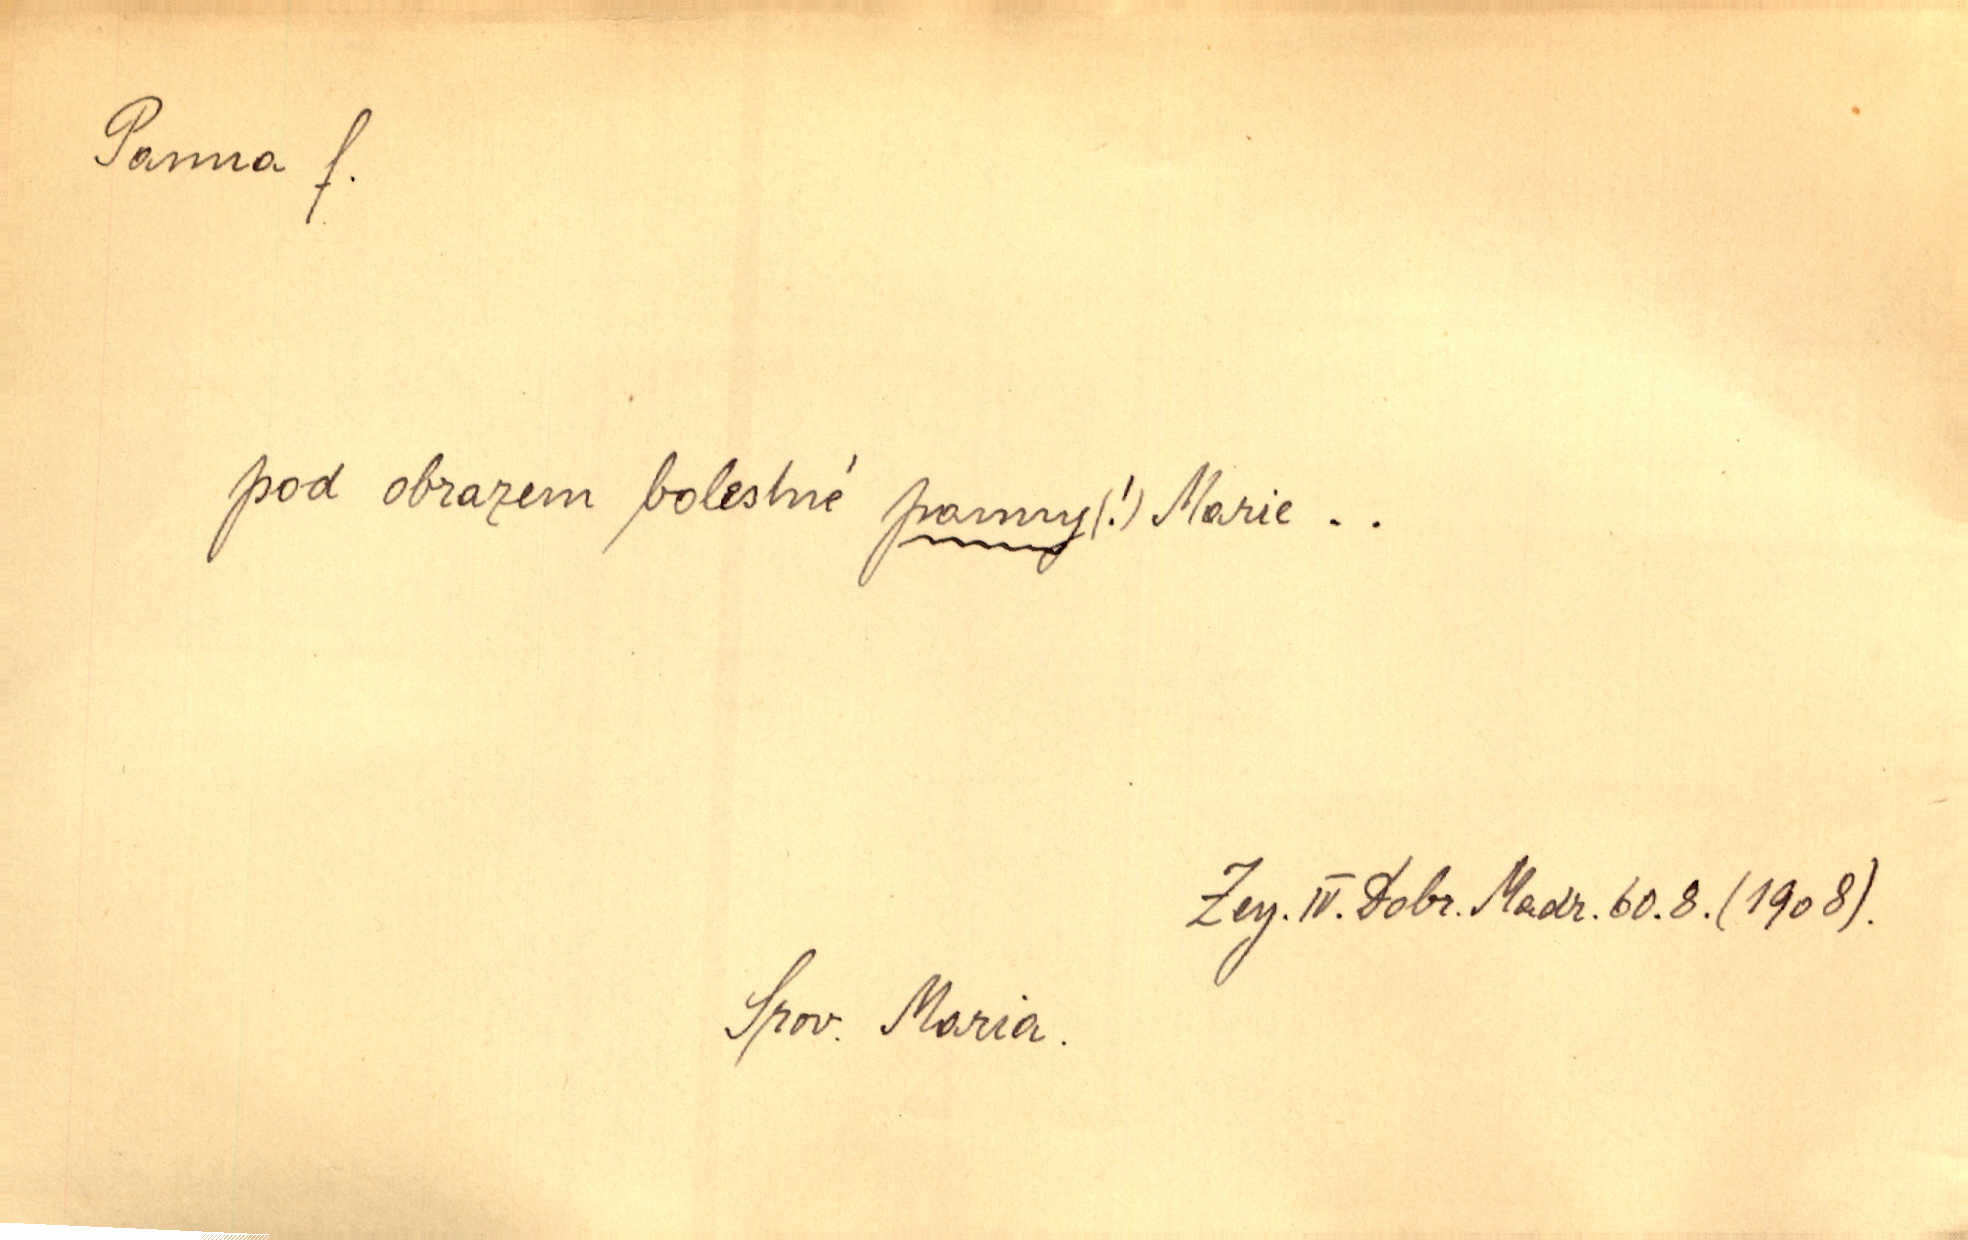 Panna f.
pod obrazem bolestné panny(!) Marie . .
Zey. IV. Dobr. Madr. 60. 8. (1908).
Srov. Maria.